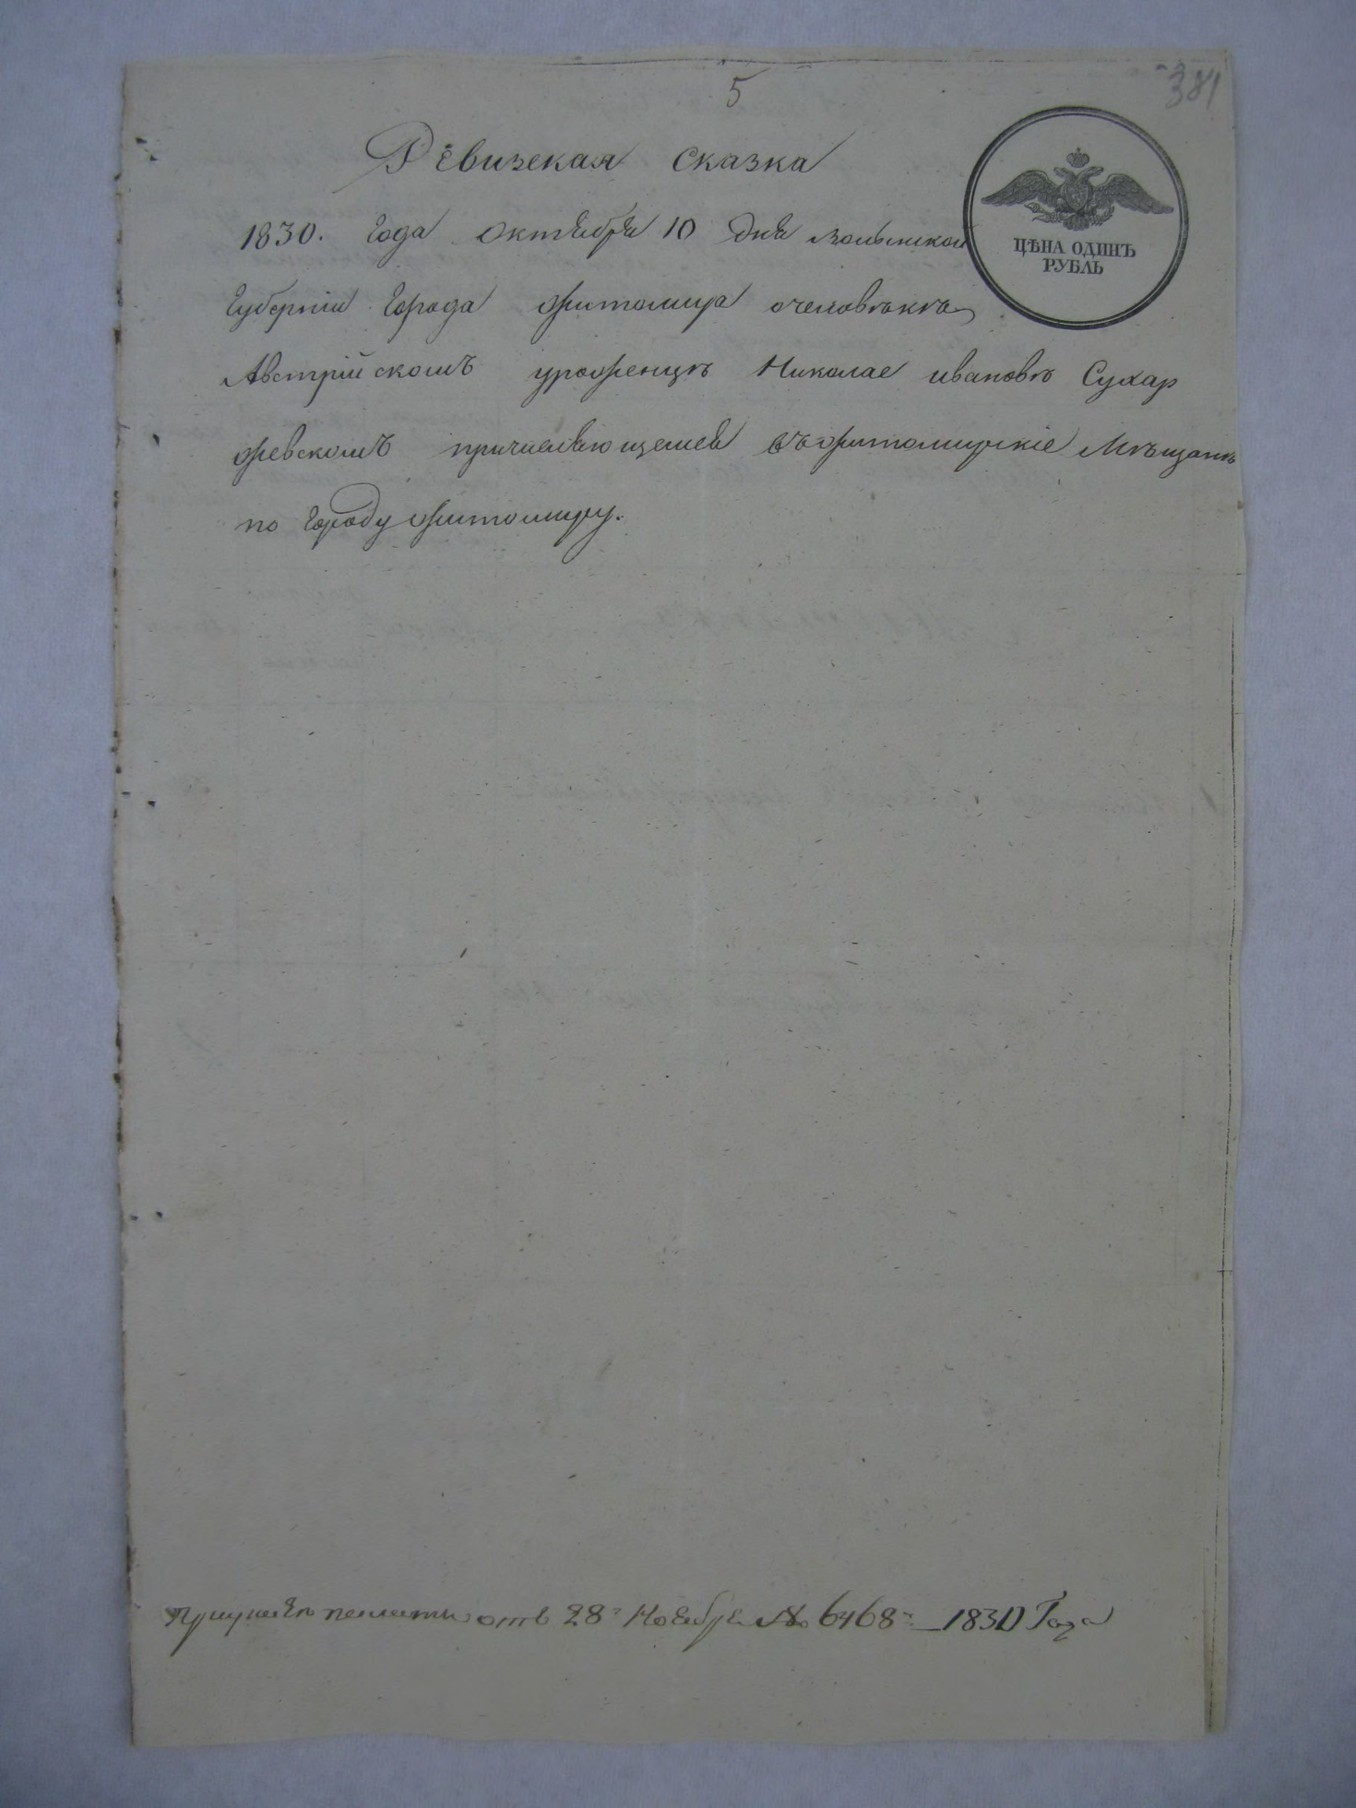 5
381
Ревизская сказка
ЦѢНА ОДИНЪ
РУБЛЬ
1830. Года Октября 10 дня Волынской
Губерніи Города Житомира очеловѣкѣ
Австрійскомъ уроженцѣ Николае Ивановѣ Сухар
жевскомъ причисляющемся въ житомирскіе Мѣщане
по Городу житомиру.
палаты отъ 28 Ноября № 6468 1830 Года